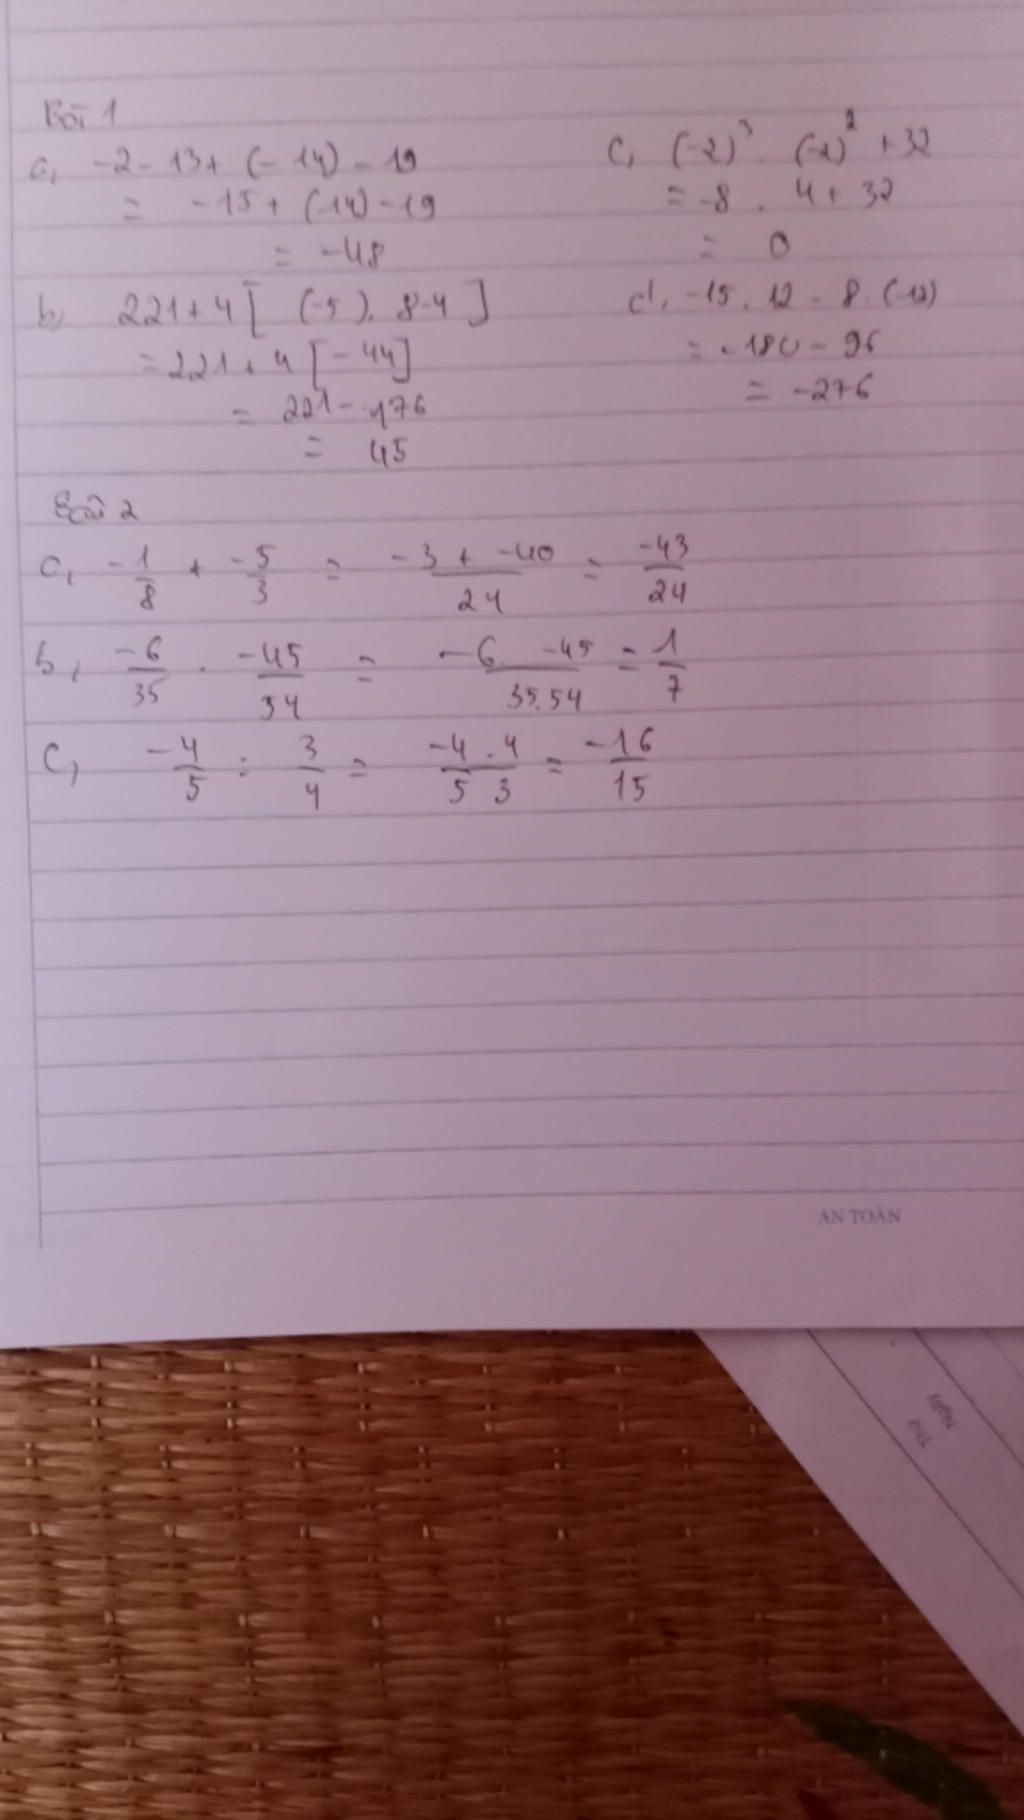 Bài 1
a, -2 - 13 + (-14) - 19
= -15 + (-14) - 19
= -48
b, 221 + 4 [ (-5) . 8 - 4 ]
= 221 + 4 [-44]
= 221 - 176
= 45
c, (-2)³ . (-2)² + 32
= -8 . 4 + 32
= 0
d, -15 . 12 - 8 . (-12)
= -180 - 96
= -276
Bài 2
a, -1/8 + -5/3 = -3 + -40/24 = -43/24
b, -6/35 . -45/54 = -6. -45/35.54 = 1/7
c, -4/5 : 3/4 = -4 . 4/5 3 = -16/15
AN TOÀN
Thứ
Ngày